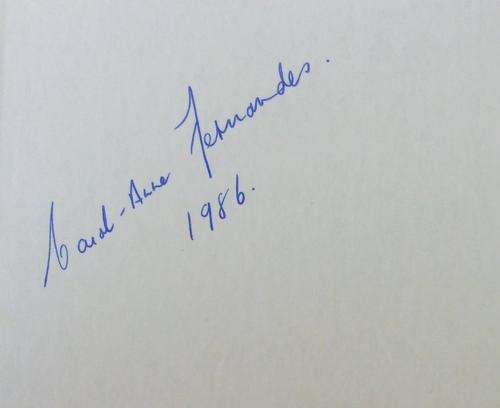 Carol-Anne Fernandes.
1986.